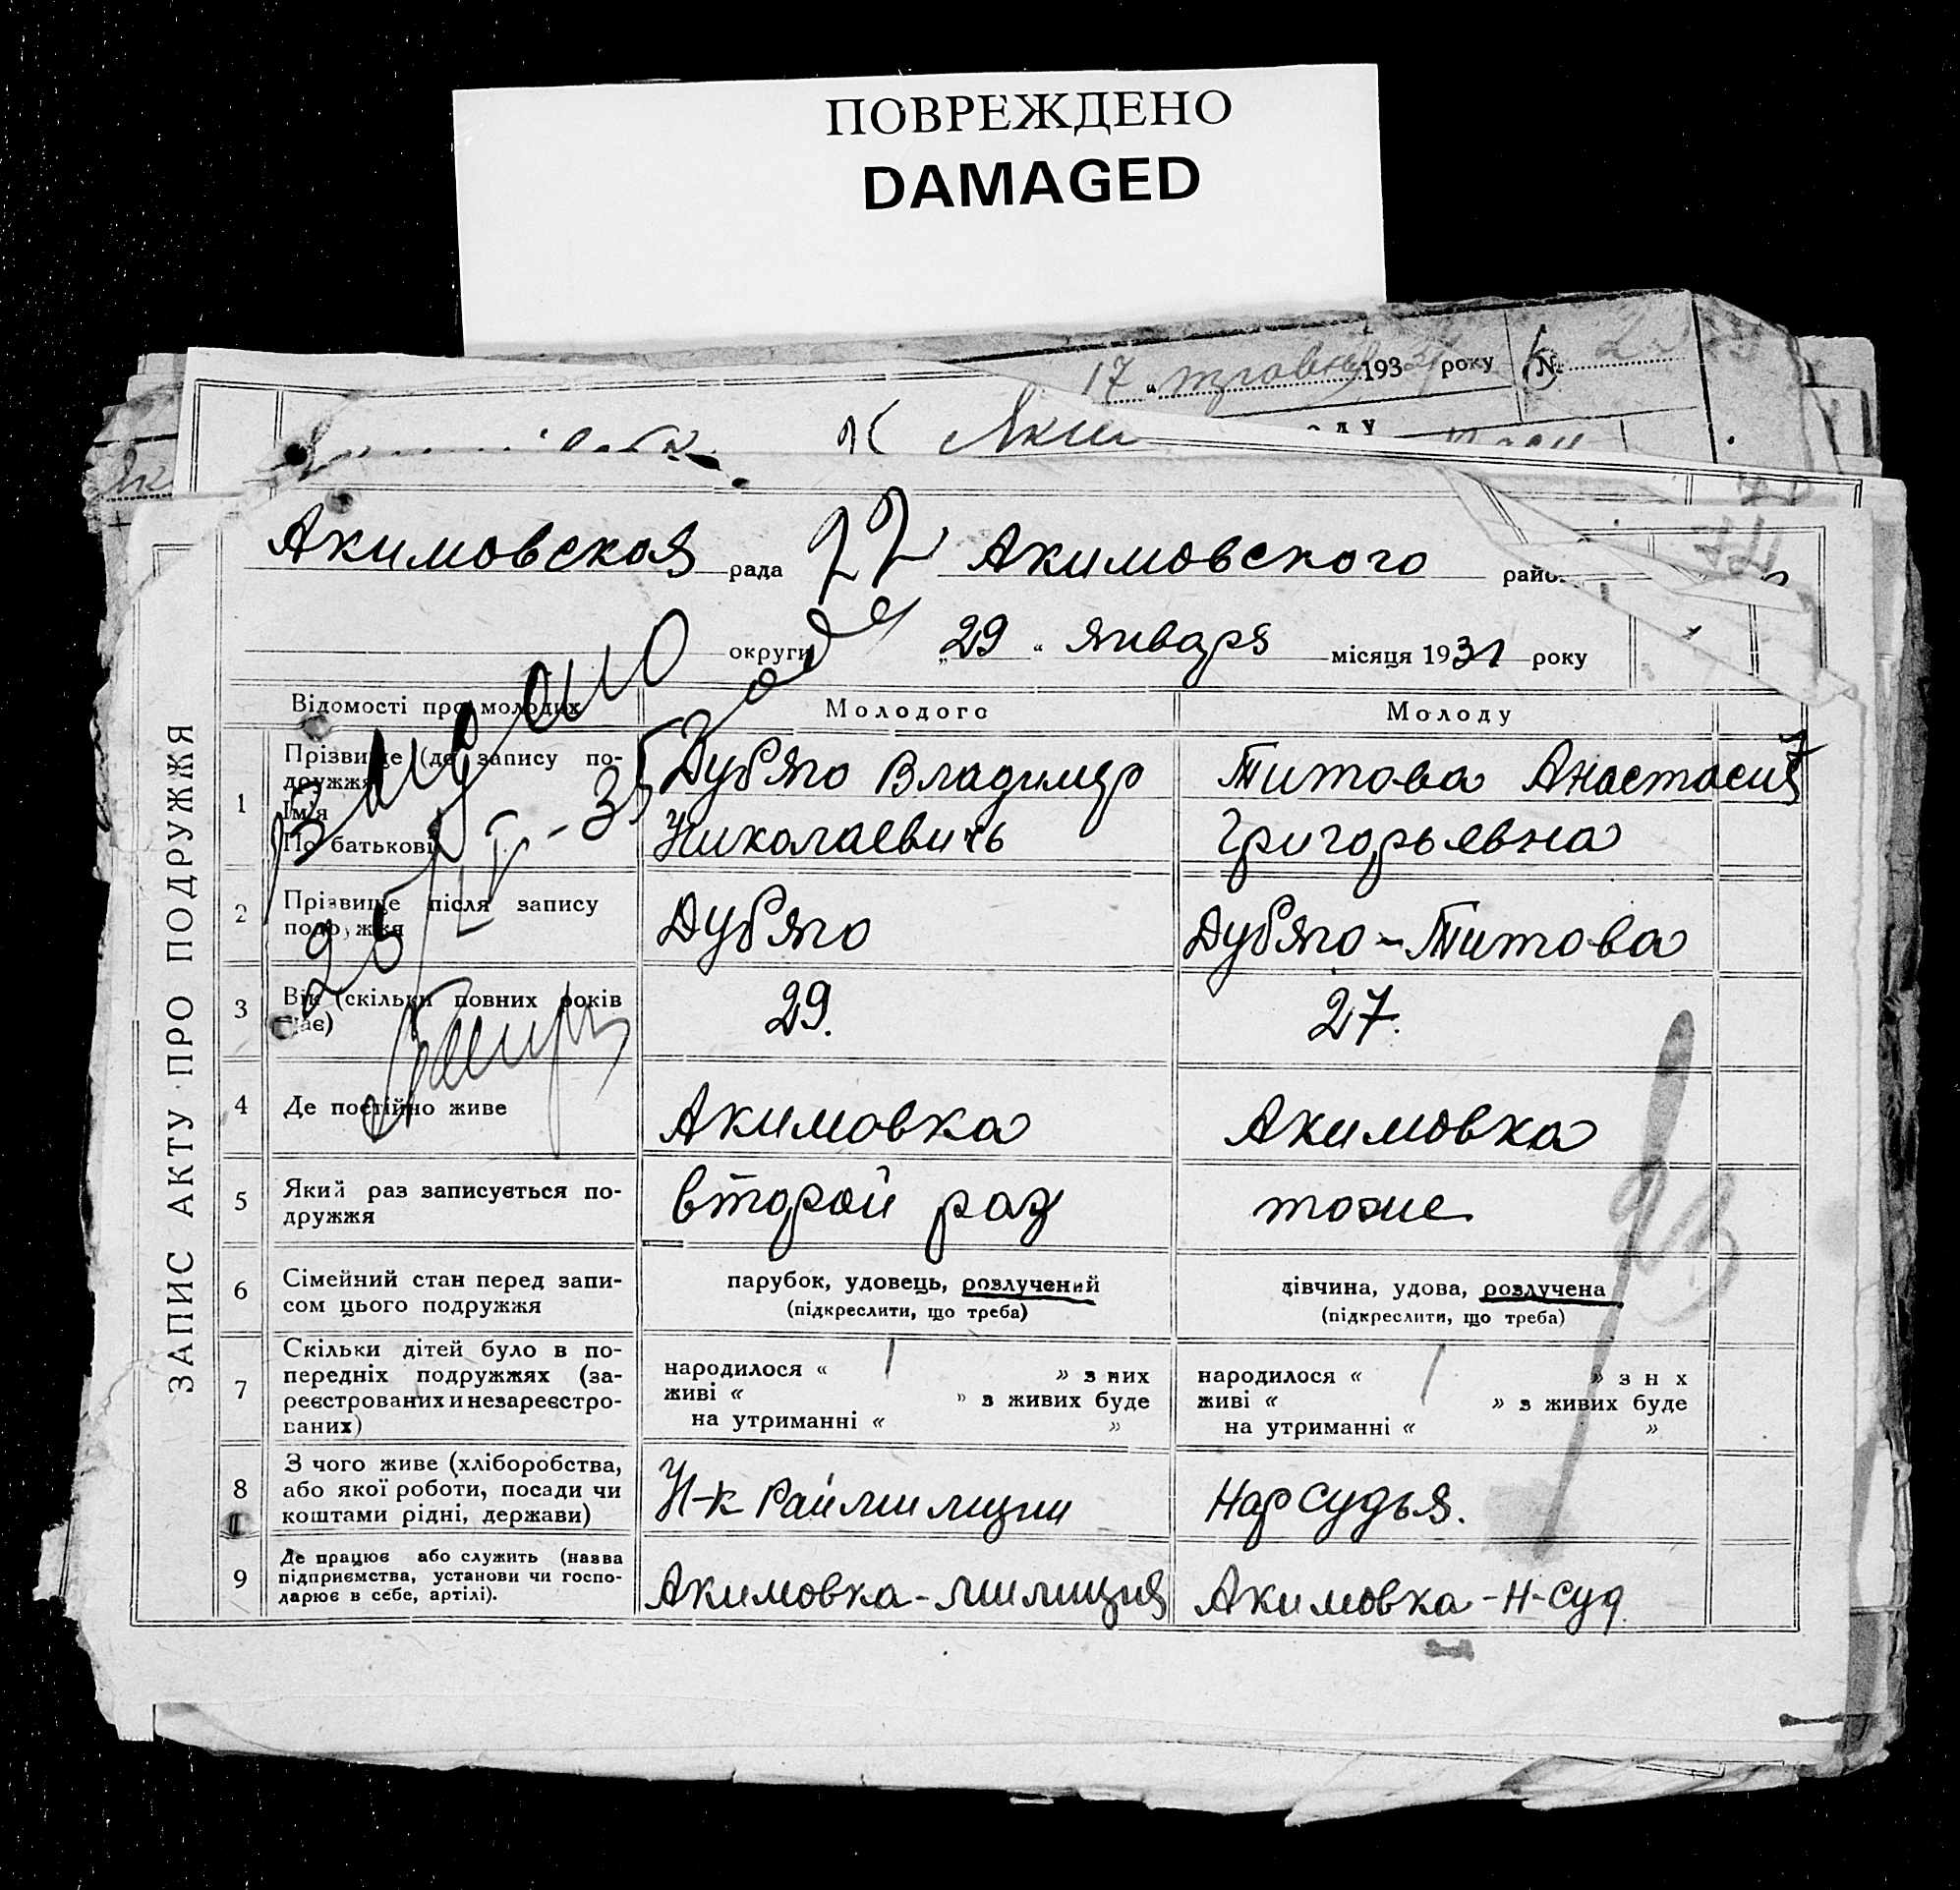 ПОВРЕЖДЕНО
DAMAGED
17 " травня 193 року №
К Яким
Акимовская рада 22 Акимовского райо
округи „29 " января місяця 1931 року
ЗАПИС АКТУ ПРО ПОДРУЖЖЯ
Відомості про молодих Молодого Молоду
1 Прізвище (до запису по-
дружжя
Ім'я
По батькові
Дубяго Владимир
Николаевичь
Титова Анастасия
Григорьевна
Выдано
25/IV-35
2 Прізвище після запису
подружжя
Дубяго
Дубяго-Титова
3 Вік (скільки повних років
має)
29.
27.
4 Де постійно живе
Акимовка
Акимовка
5 Який раз записується по-
дружжя
второй раз
тоже
6 Сімейний стан перед запи-
сом цього подружжя
парубок, удовець, розлучений
(підкреслити, що треба)
дівчина, удова, розлучена
(підкреслити, що треба)
7 Скільки дітей було в по-
передніх подружжях (за-
реєстрованих и незареєстро-
ваних)
народилося « » з них
живі « » з живих буде
на утриманні « »
народилося « » з н х
живі « » з живих буде
на утриманні « »
8 З чого живе (хліборобства,
або якої роботи, посади чи
коштами рідні, держави)
Н-к Раймилиции
Нарсудья.
9 Де працює або служить (назва
підприємства, установи чи госпо-
дарює в себе, артілі).
Акимовка-милиция
Акимовка-Н-суд.